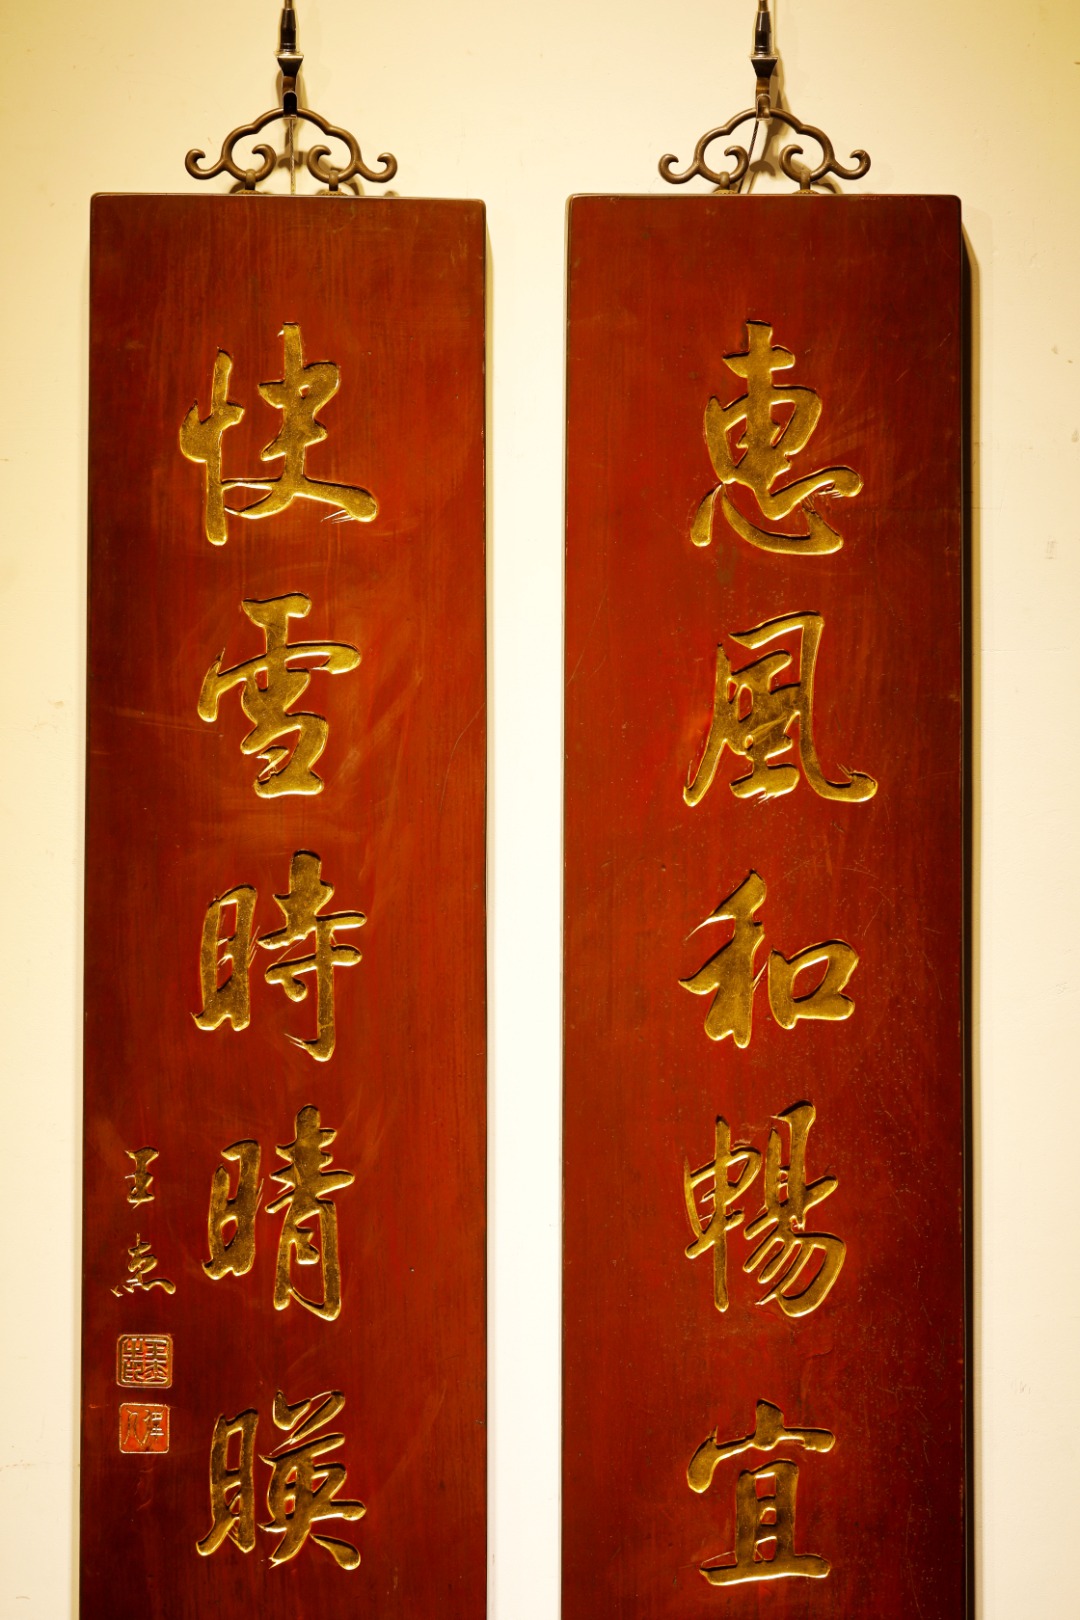 惠風和暢宜
快雪時晴暎
王杰